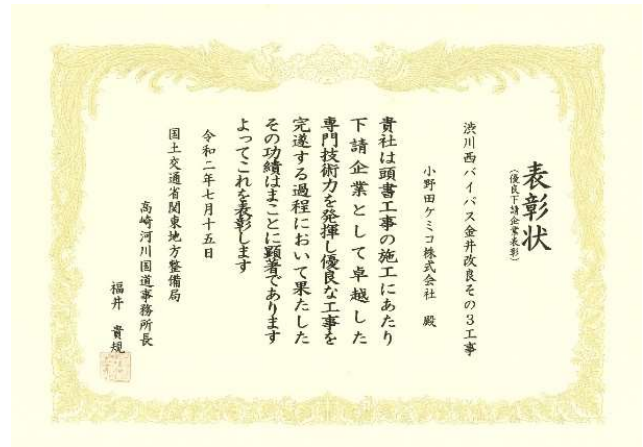 表彰状
(優良下請企業表彰)
渋川西バイパス金井改良その3工事
小野田ケミコ株式会社 殿
貴社は頭書工事の施工にあたり
下請企業として卓越した
専門技術力を発揮し優良な工事を
完遂する過程において果たした
その功績はまことに顕著であります
よってこれを表彰します
令和二年七月十五日
国土交通省関東地方整備局
高崎河川国道事務所長
福井 貴規